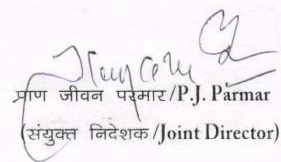 प्राण जीवन परमार/P.J. Parmar
(संयुक्त निदेशक/Joint Director)